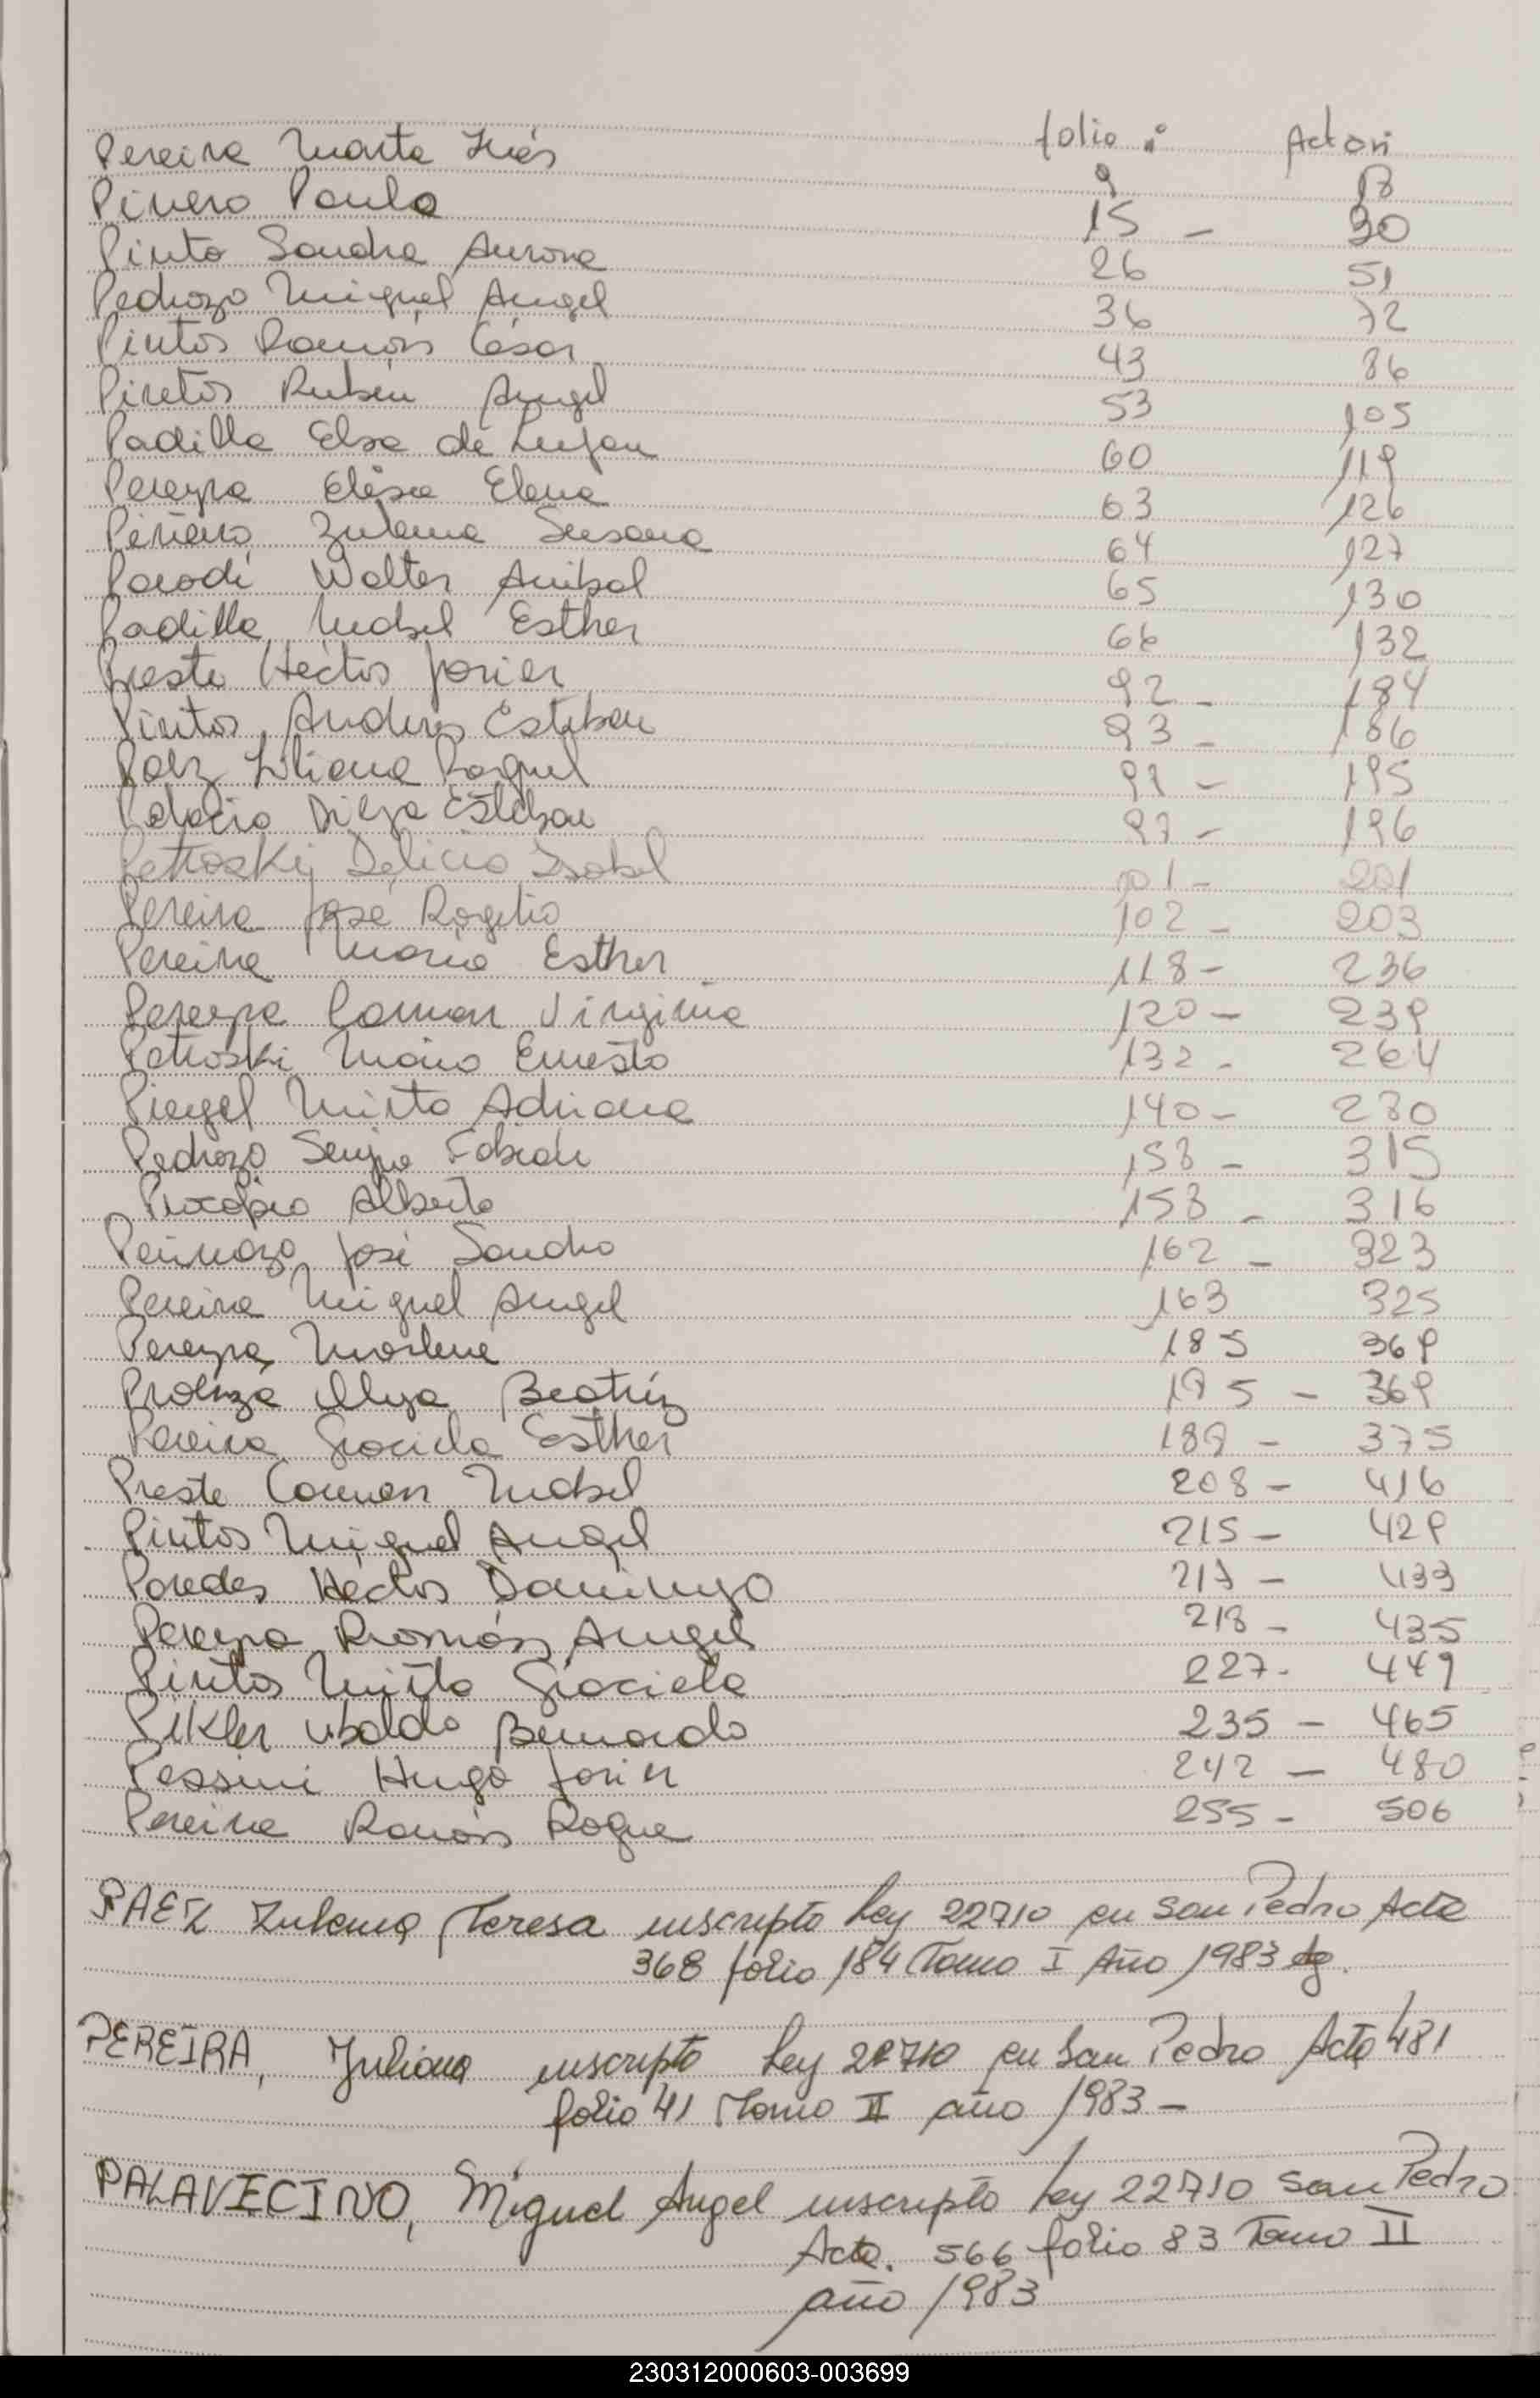 folio: Acta n
Pereira Marta Inés 9 18
Pinero Paula 15 - 30
Pinto Sandra Aurora 26 51
Pedrozo Miguel Angel 36 72
Pintos Ramón César 43 86
Pintos Rubén Angel 53 105
Padilla Elsa de Lujan 60 119
Pereyra Elisa Elena 63 126
Piñeiro Zulema Susana 64 127
Parodi Walter Anibal 65 130
Padilla Mabel Esther 66 132
Preste Héctor Javier 92 - 184
Pintos Andres Esteban 93 - 186
Paez Liliana Raquel 97 - 195
Palacio Diego Esteban 97 - 196
Petroski Delicia Isabel 101 - 201
Pereira José Rogelio 102 - 203
Pereira Maria Esther 118 - 236
Pereyra Carmen Virginia 120 - 239
Petroski Mario Ernesto 132 - 264
Mirta Adriana 140 - 280
Pedrozo Sergio Fabian 158 - 315
Procopio Alberto 158 - 316
José Sandro 162 - 323
Pereira Miguel Angel 163 325
Pereyra Marlene 185 369
Beatriz 195 - 369
Pereira Graciela Esther 189 - 375
Preste Carmen Mabel 208 - 416
Pintos Miguel Angel 215 - 429
Paredes Héctor Domingo 217 - 433
Pereyra Román Angel 218 - 435
Pintos Mirta Graciela 227 - 449
Pikler Ubaldo Bernardo 235 - 465
Pessini Hugo Javier 242 - 480
Pereira Ramón Roque 255 - 506
PAEZ Zulema Teresa inscripta Ley 22710 en San Pedro Acta
368 folio 184 Tomo I Año 1983
PEREIRA, Juliana inscripta Ley 22710 en San Pedro Acta 481
folio 41 Tomo II año 1983 -
PALAVECINO, Miguel Angel inscripto Ley 22710 San Pedro
Acta. 566 folio 83 Tomo II
año 1983
230312000603-003699